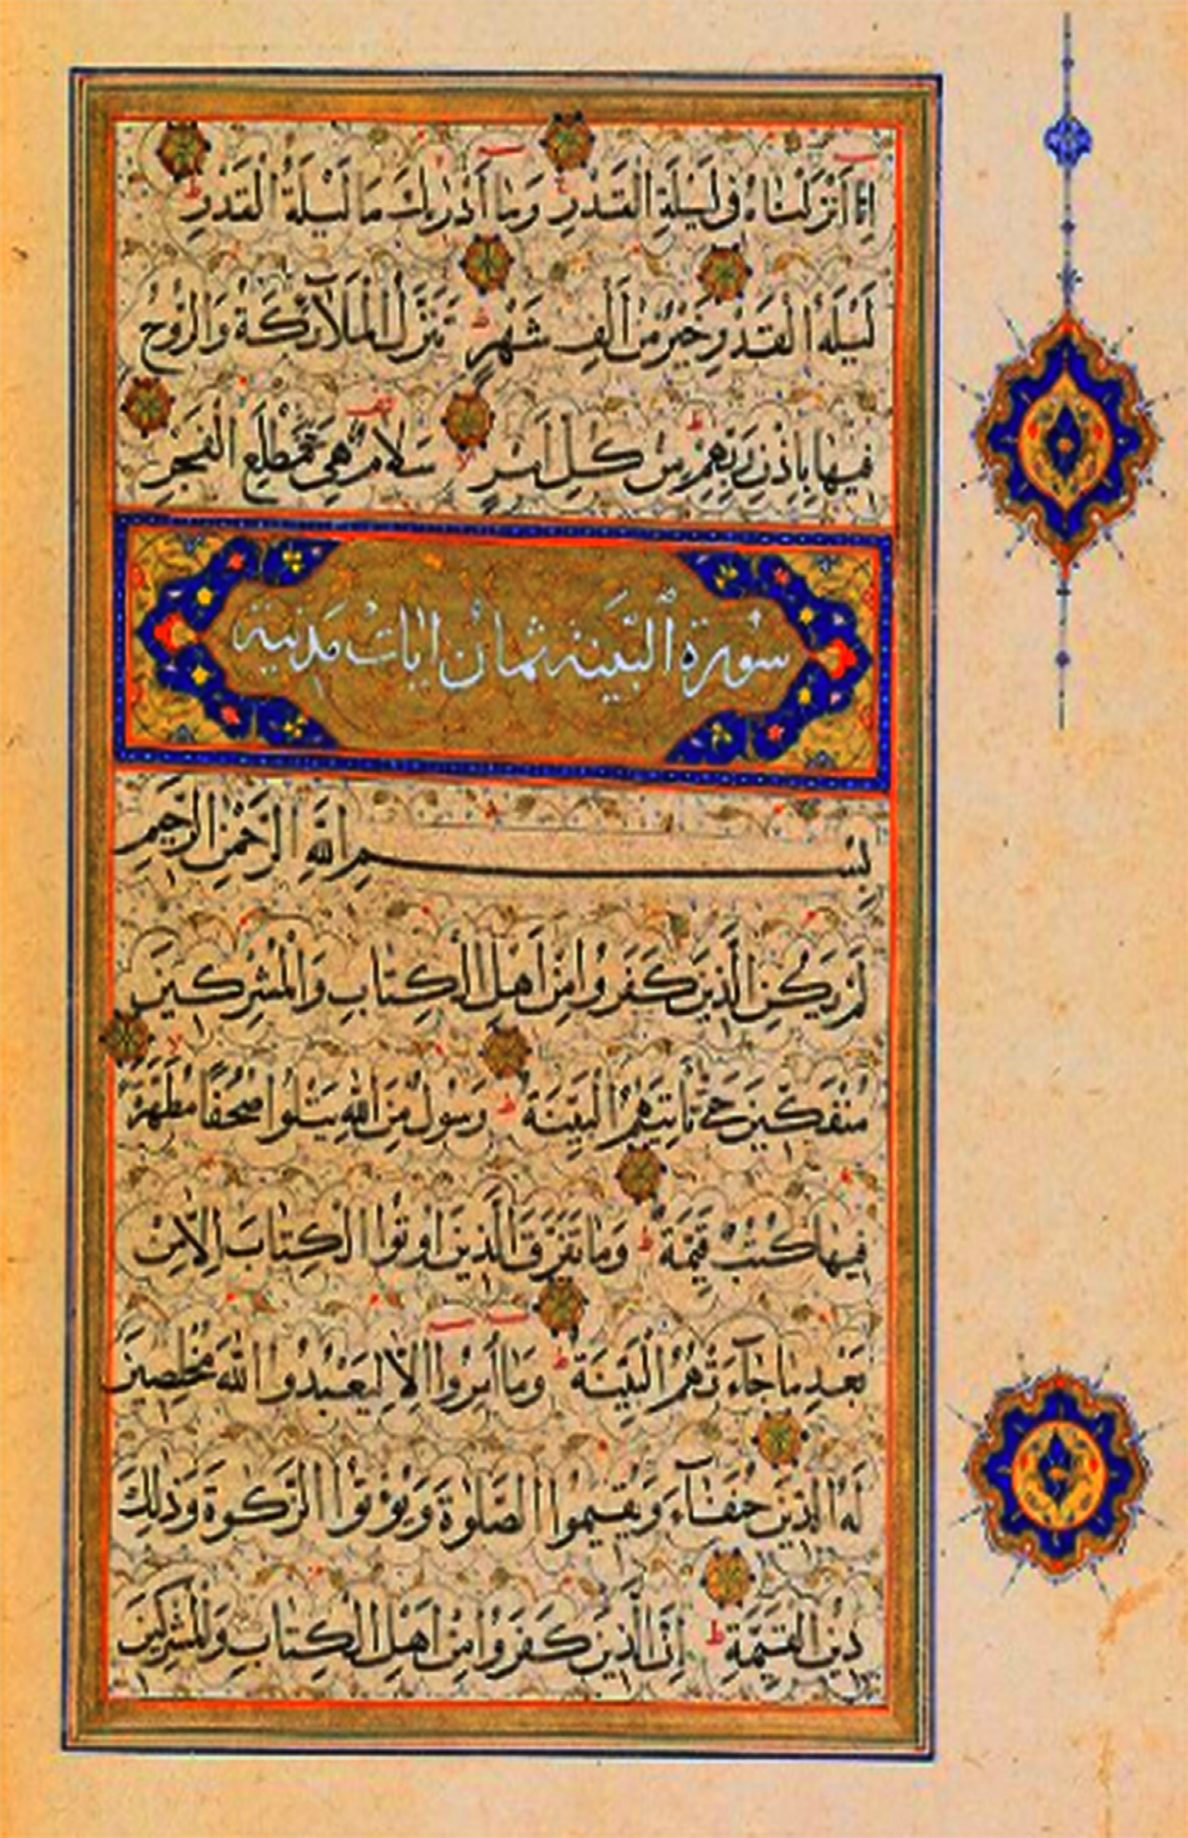 اِنَّا اَنْزَلْنَاهُ فِی لَیْلَةِ الْقَدْرِ ط وَمَا اَدْرٰیكَ مَا لَیْلَةُ الْقَدْرِ ط
لَیْلَةُ الْقَدْرِ خَیْرٌ مِنْ اَلْفِ شَهْرٍ ط تَنَزَّلُ الْمَلَآئِكَةُ وَالرُّوحُ
فِیهَا بِاِذْنِ رَبِّهِمْ مِنْ كُلِّ اَمْرٍ لا سَلَامٌ هِیَ حَتّٰی مَطْلَعِ الْفَجْرِ
سُورَةُ الْبَیِّنَةِ ثَمَانُ اٰیَاتٍ مَدَنِیَّةٌ
بِسْمِ اللّٰهِ الرَّحْمٰنِ الرَّحِیمِ
لَمْ یَكُنِ الَّذِینَ كَفَرُوا مِنْ اَهْلِ الْكِتَابِ وَالْمُشْرِكِینَ
مُنْفَكِّینَ حَتّٰی تَاْتِیَهُمُ الْبَیِّنَةُ ط رَسُولٌ مِنَ اللّٰهِ یَتْلُوا صُحُفًا مُطَهَّرَةً لا
فِیهَا كُتُبٌ قَیِّمَةٌ ط وَمَا تَفَرَّقَ الَّذِینَ اُوتُوا الْكِتَابَ اِلَّا مِنْ
بَعْدِ مَا جَآءَتْهُمُ الْبَیِّنَةُ ط وَمَا اُمِرُوا اِلَّا لِیَعْبُدُوا اللّٰهَ مُخْلِصِینَ
لَهُ الدِّینَ حُنَفَآءَ وَیُقِیمُوا الصَّلٰوةَ وَیُؤْتُوا الزَّكٰوةَ وَذٰلِكَ
دِینُ الْقَیِّمَةِ ط اِنَّ الَّذِینَ كَفَرُوا مِنْ اَهْلِ الْكِتَابِ وَالْمُشْرِكِینَ